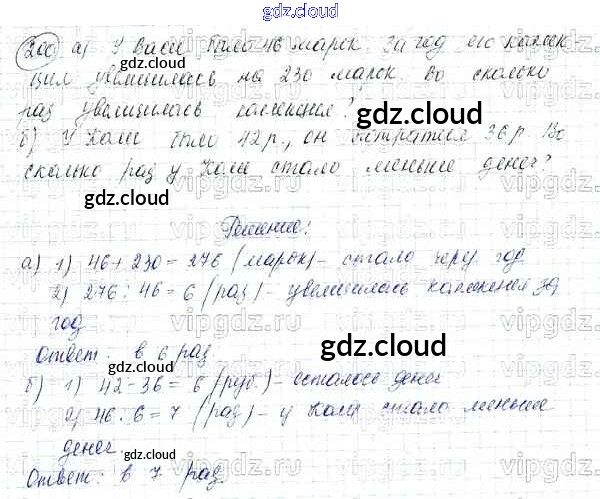 gdz.cloud
200 а) У Васи было 46 марок. За год его коллек-
ция увеличилась на 230 марок. Во сколько
раз увеличилась коллекция?
gdz.cloud
б) У Коли было 42 р., он потратил 36 р. Во
сколько раз у Коли стало меньше денег?
gdz.cloud
Решение:
а) 1) 46 + 230 = 276 (марок) - стало через год
2) 276 : 46 = 6 (раз) - увеличилась коллекция за
год
Ответ: в 6 раз
gdz.cloud
gdz.cloud
б) 1) 42 - 36 = 6 (руб.) - осталось денег
2) 46 : 6 = 7 (раз) - у Коли стало меньше
денег.
gdz.cloud
Ответ: в 7 раз
gdz.cloud
vipgdz.ru